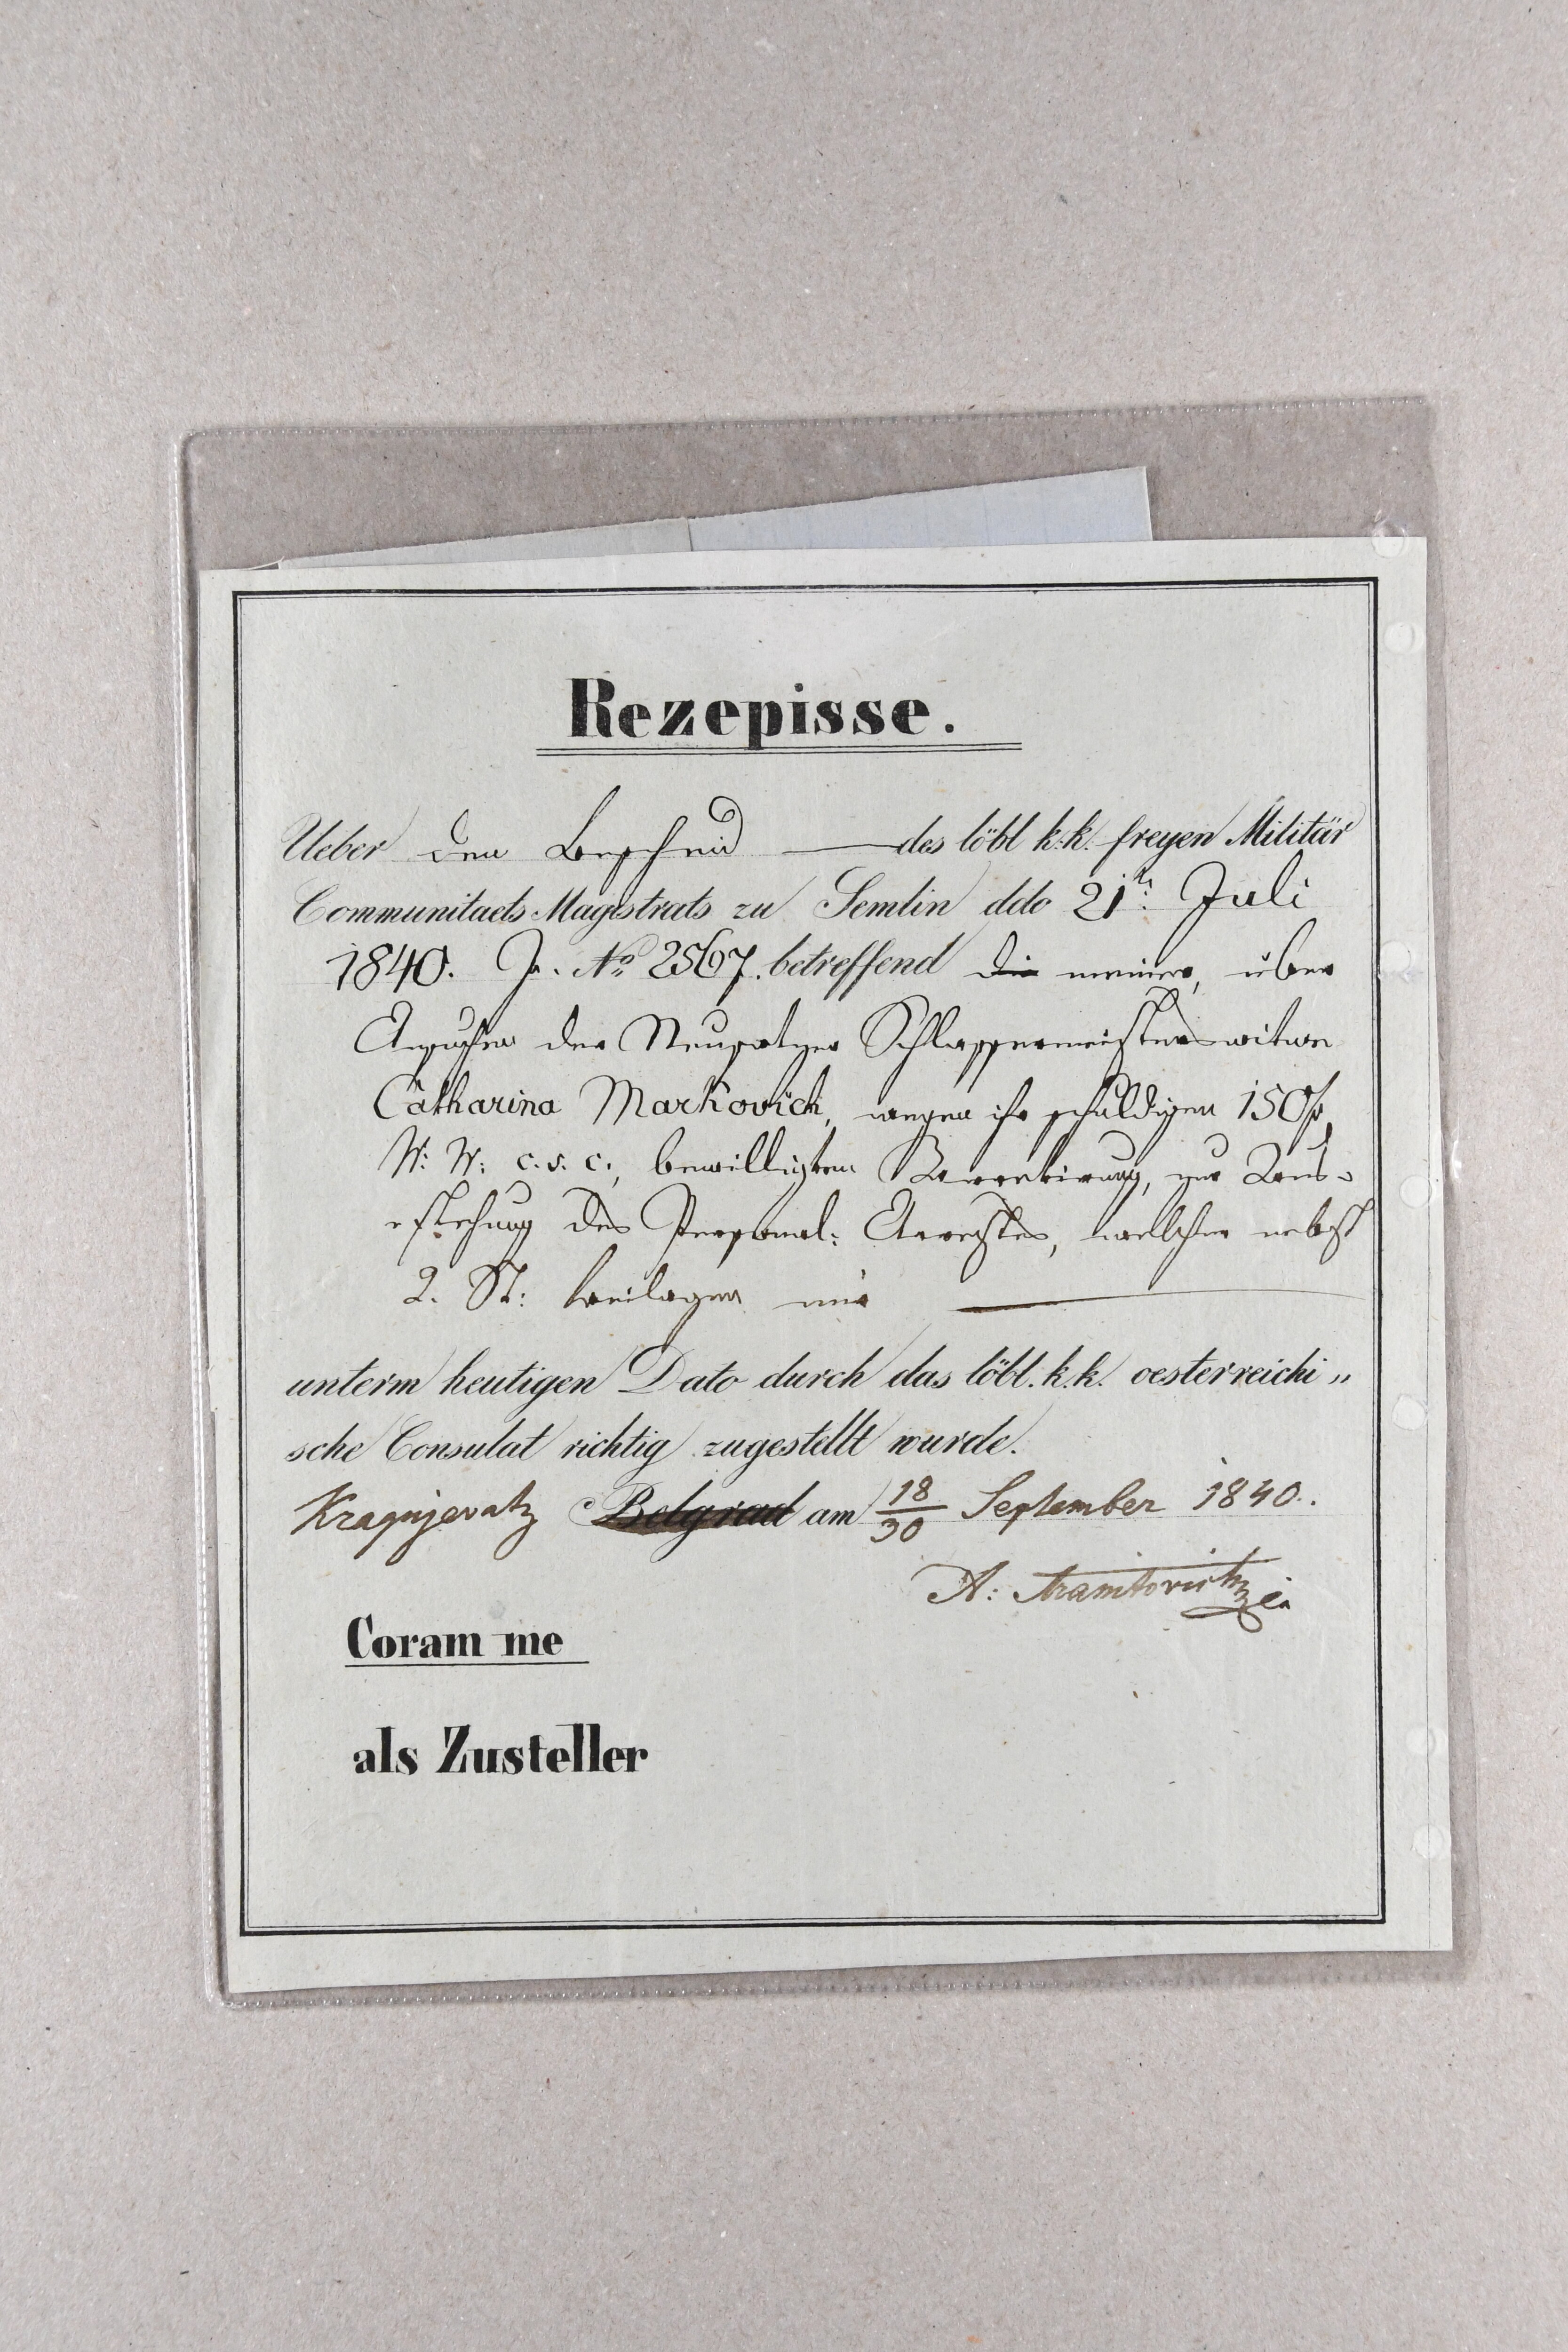 Rezepisse.
Ueber den Bescheid — des löbl k.k. freyen Militär
Communitaets Magistrats zu Semlin ddo 21t: Juli
1840. J. No 2567. betreffend die meiner, über
Ansuchen der Neusatzer Schlossermeisters witwe
Catharina Markovich, wegen ihr schuldigen 150f
W: W: c.s.c., bewilligten, zur Aus-
stehung des Personal: Arrestes, welcher nebst
2. St: beilagen mir —
unterm heutigen Dato durch das löbl. k.k. oesterreichi„
sche Consulat richtig zugestellt wurde.
Kragujevatz Belgrad am 18/30 September 1840.
A:
Coram me
als Zusteller